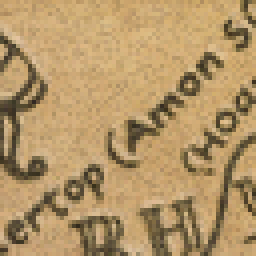 ertop (Amon S
(Hoa
R H